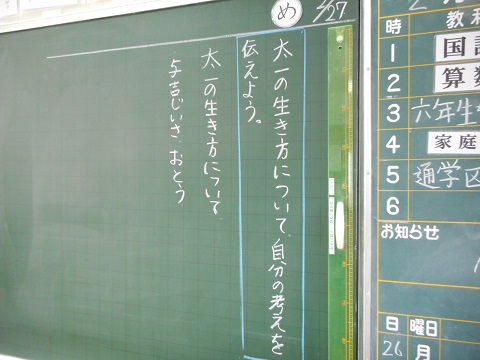 め
2/27
太一の生き方について、自分の考えを
伝えよう。
太一の生き方について
与吉じいさ、おとう
時
教科
1 国
2 算数
3 六年生
4 家庭
5 通学区
6
お知らせ
日 曜日
26 月